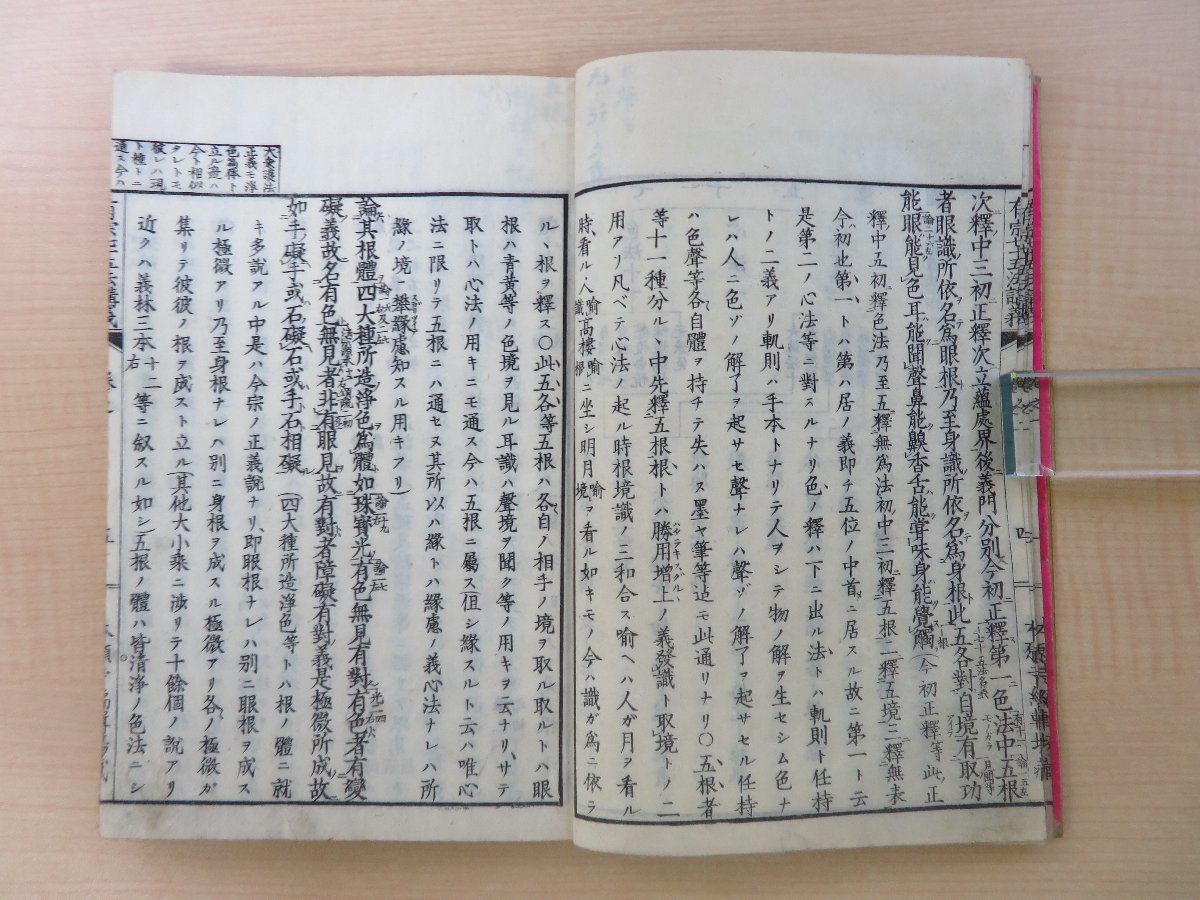 次釋中三初正釋次立蘊處界後義門分別今初正釋第一色法中五根
者眼識所依名爲眼根乃至身識所依名爲身根此五各對自境有取功
能眼能見色耳能聞聲鼻能齅香舌能甞味身能覺觸今初正釋等此正
釋中五初釋色法乃至五釋無爲法初中三初釋五根二釋五境三釋無表
今初也第一トハ第ハ居ノ義即チ五位ノ中首ニ居スル故ニ第一ト云
是第二ノ心法等ニ對スルナリ色ノ釋ハ下ニ出ル法トハ軌則ト任持
トノ二義アリ軌則ハ手本トナリテ人ヲシテ物ノ解ヲ生セシム色ナ
レハ人ニ色ゾノ解了ヲ起サセ聲ナレハ聲ゾノ解了ヲ起サセル任持
ハ色聲等各自體ヲ持チテ失ハス墨ヤ筆等迠モ此通リナリ〇五根者
等十一種分ル、中先釋五根根トハ勝用増上ノ義發識ト取境トノ二
用アリ凡ベテ心法ノ起ル時根境識ノ三和合ス喻ヘハ人ガ月ヲ看ル
時看ル人喻識高樓喻根ニ坐シ明月喻境ヲ看ル如キモノ今ハ識ガ爲ニ依ラ
ル、根ヲ釋ス〇此五各等五根ハ各自ノ相手ノ境ヲ取ル取ルトハ眼
根ハ青黄等ノ色境ヲ見ル耳識ハ聲境ヲ聞ク等ノ用キヲ云ナリ、サテ
取トハ心法ノ用キニモ通ス今ハ五根ニ屬ス但シ緣スルト云ハ唯心
法ニ限リテ五根ニハ通セヌ其所以ハ緣トハ緣慮ノ義心法ナレハ所
緣ノ境ヲ攀緣慮知スル用キアリ
論其根體四大種所造淨色爲體如珠寶光有色無見有對有色者有變
礙義故名有色無見者非有眼見故有對者障礙有對義是極微所成故
如手礙手或石礙石或手石相礙 四大種所造淨色等トハ根ノ體ニ就
キ多說アル中是ハ今宗ノ正義說ナリ、即眼根ナレハ別ニ眼根ヲ成ス
ル極微アリ乃至身根ナレハ別ニ身根ヲ成スル極微アリ各ノ極微ガ
集リテ彼彼ノ根ヲ成スト立ル其他大小乘ニ涉リテ十餘個ノ說アリ
近クハ義林三本十二右等ニ叙スル如シ五根ノ體ハ皆清淨ノ色法ニシ
大衆護法
正義モ淨
色爲體ト
立ル邊ハ
今ト相似
タレトモ
彼レハ現
ト種トニ
通ス今ハ